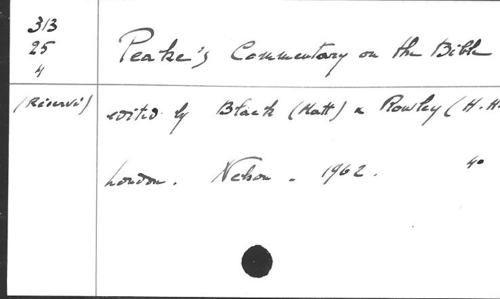 313
25
4
Peake's Commentary on the Bible
(Réservé)
edited by Black (Matt) & Rowley (H.H.
London. Nelson. 1962. 4°